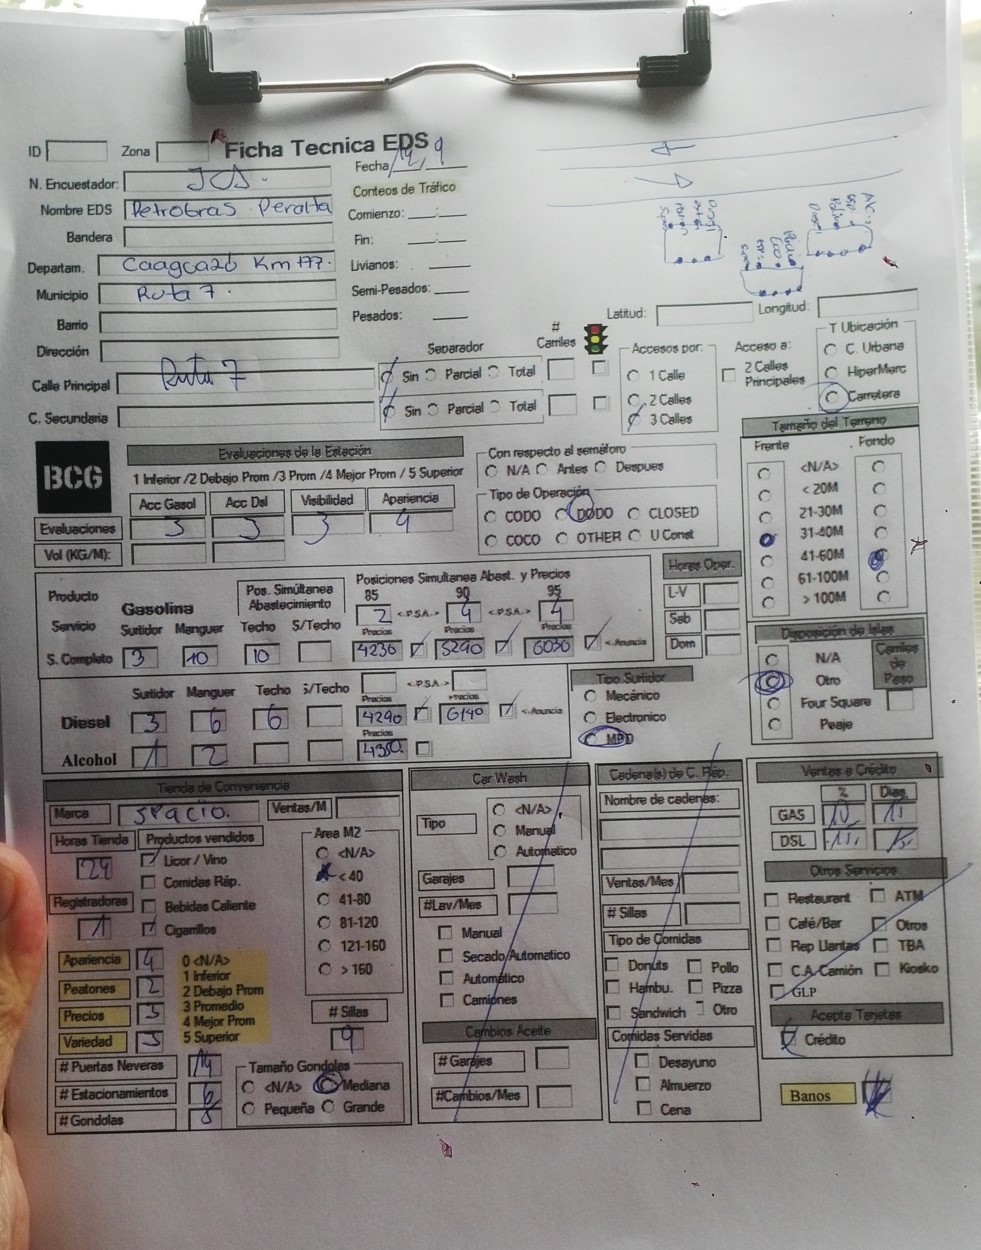 Ficha Tecnica EDS
ID
Zona
Fecha 12/9
N. Encuestador: JCA.
Conteos de Tráfico
Nombre EDS Petrobras Peralta
Comienzo: __:__
Bandera
Fin: __:__
Departam. Caaguazú Km 177.
Livianos:
Municipio Ruta 7.
Semi-Pesados:
Barrio
Pesados:
Latitud:
Longitud:
Dirección
Separador
# Carriles
Accesos por:
Acceso a:
T Ubicación
Calle Principal Ruta 7
Sin Parcial Total
1 Calle
2 Calles Principales
C. Urbana
HiperMerc
Carretera
C. Secundaria
Sin Parcial Total
2 Calles
3 Calles
BCG
Evaluaciones de la Estación
1 Inferior /2 Debajo Prom /3 Prom /4 Mejor Prom / 5 Superior
Acc Gasol Acc Dsl Visibilidad Apariencia
Evaluaciones 3 3 3 4
Vol (KG/M):
Con respecto al semáforo
N/A Antes Despues
Tipo de Operación
CODO DODO CLOSED
COCO OTHER U Const
Tamaño del Terreno
Frente Fondo
<N/A>
< 20M
21-30M
31-40M
41-60M
61-100M
> 100M
Producto
Gasolina
Pos. Simúltanea Abastecimiento
Posiciones Simultanea Abast. y Precios
85 90 95
2 <.P.S.A.> 4 <.P.S.A.> 4
Servicio Surtidor Manguer Techo S/Techo
Precios Precios Precios
S. Completo 3 10 10
4236 5290 6030 <-Anuncio
Horas Oper.
L-V
Sab
Dom
Disposición de Islas
N/A
Otro
Four Square
Peaje
Carriles de Paso
Surtidor Manguer Techo S/Techo
<.P.S.A.>
Precios Precios
Diesel 3 6 6
4290 6140 <-Anuncio
Precios
Alcohol 1 2
4350.
Tipo Surtidor
Mecánico
Electronico
MPD
Tienda de Conveniencia
Marca spacio.
Ventas/M
Horas Tienda 24
Productos vendidos
Licor / Vino
Comidas Ráp.
Bebidas Caliente
Cigarrillos
Registradoras 1
Area M2
<N/A>
< 40
41-80
81-120
121-160
> 160
Apariencia 4
Peatones 2
Precios 3
Variedad 3
0 <N/A>
1 Inferior
2 Debajo Prom
3 Promedio
4 Mejor Prom
5 Superior
# Sillas
9
# Puertas Neveras 14
# Estacionamientos 6
# Gondolas 8
Tamaño Gondolas
<N/A> Mediana
Pequeña Grande
Car Wash
Tipo
<N/A>
Manual
Automatico
Garajes
#Lav/Mes
Manual
Secado Automatico
Automático
Camiones
Cambios Aceite
# Garajes
#Cambios/Mes
Cadena(s) de C. Ráp.
Nombre de cadenas:
Ventas/Mes
# Sillas
Tipo de Comidas
Donuts Pollo
Hambu. Pizza
Sandwich Otro
Comidas Servidas
Desayuno
Almuerzo
Cena
Ventas a Crédito
% Dias
GAS 10 15
DSL 15. 15.
Otros Servicios
Restaurant ATM
Café/Bar Otros
Rep Llantas TBA
C.A.Camión Kiosko
GLP
Acepta Tarjetas
Crédito
Banos